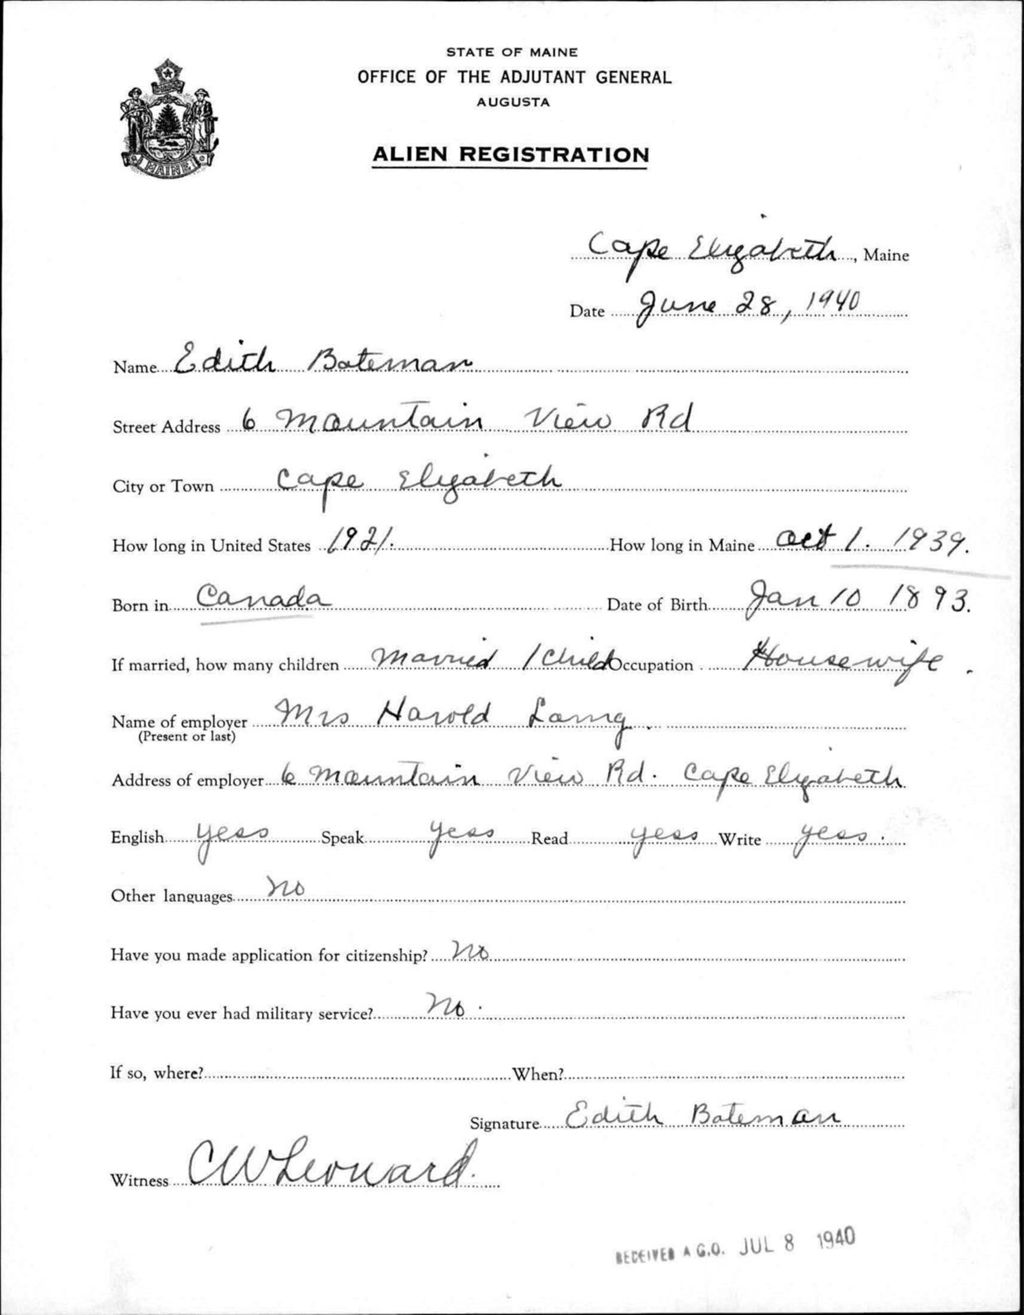 STATE OF MAINE
OFFICE OF THE ADJUTANT GENERAL
AUGUSTA
ALIEN REGISTRATION
MAINE
Cape Elizabeth, Maine
Date June 28, 1940
Name Edith Bateman
Street Address 6 Mountain View Rd
City or Town Cape Elizabeth
How long in United States 1921. How long in Maine Oct 1. 1939.
Born in Canada Date of Birth Jan 10 1893.
If married, how many children Married 1 Child Occupation Housewife.
Name of employer Mrs Harold
(Present or last)
Address of employer 6 Mountain View Rd. Cape Elizabeth
English yess Speak yess Read yess Write yess.
Other languages no
Have you made application for citizenship? No
Have you ever had military service? No.
If so, where? When?
Signature Edith Bateman
Witness CW Leonard.
RECEIVED A.G.O. JUL 8 1940